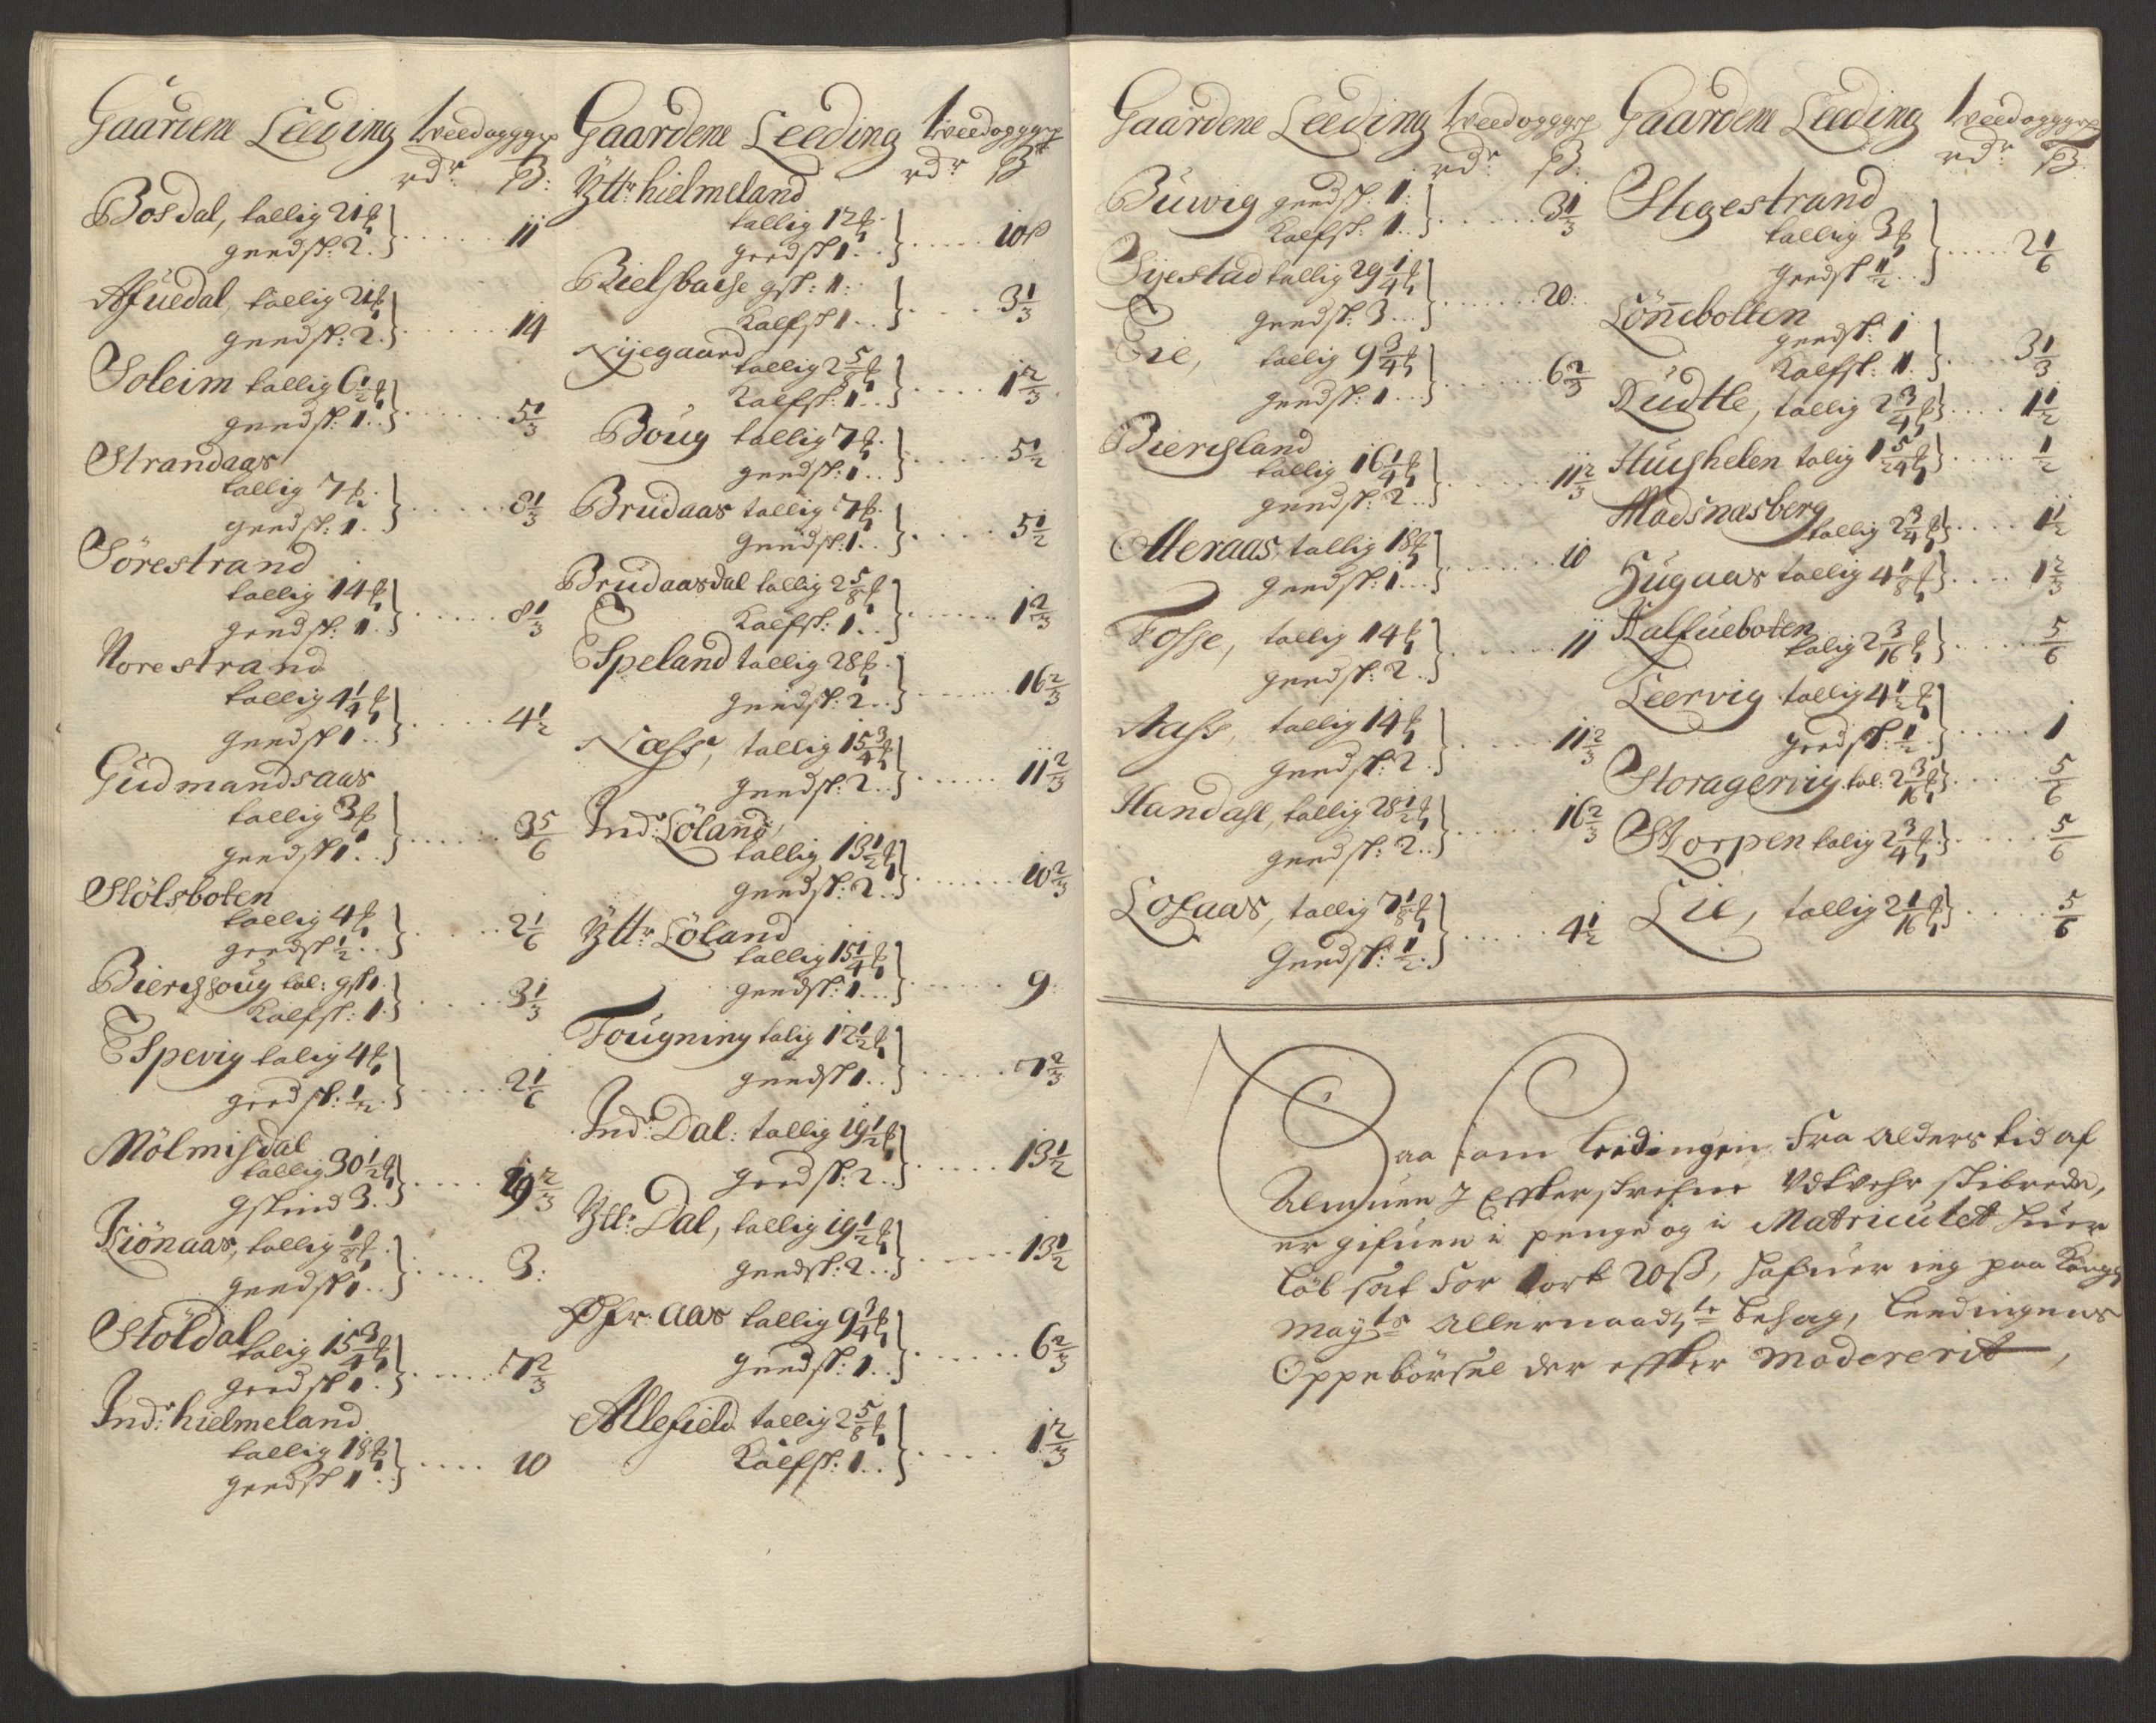 Gaardene Leeding
rdr ß:
Bosdal, tallig 21 ℔
geedsk: 2. } 11
Afuedal, tallig 21 ℔
geedsk: 2. } 14
Soleim tallig 6 1/2 ℔
geedsk: 1. } 5 1/3
Strandaas
tallig 7 ℔
geedsk: 1. } 8 1/3
Sörestrand
tallig 14 ℔
geedsk: 1. } 8 1/3
Norestrand
tallig 4 1/4 ℔
geedsk 1. } 4 1/2
Gudmandsaas
tallig 3 ℔
geedsk 1. } 3 5/6
Stölsboten
tallig 4 ℔
geedsk 1/2 } 2 1/6
tal: gsk 1.
Kalfsk: 1. } 3 1/3
Espevig talig 4 ℔
geedsk: 1/2 } 2 1/6
Mölmisdal
tallig 30 1/2 ℔
gskind 3. } 19 2/3
Kiönaas, tallig 1/8 ℔
geedsk 1. } 3:
Stöldal
talig 15 3/4 ℔
geedsk 1. } 7 2/3
Indr: hielmeland
tallig 18 ℔
geedsk 1. } 10
Gaardene Leeding
rdr ß
Yttr: hielmeland
tallig 12 ℔
geedsk 1. } 10 ß
Kielsbaise gsk: 1:
Kalfsk 1. } 3 1/3
Nijegaard
tallig 2 5/8 ℔
Kalfsk: 1. } 1 2/3
Böug tallig 7 ℔
geedsk: 1. } 5 1/2
Brudaas tallig 7 ℔
geedsk: 1. } 5 1/2
Brudaasdal tallig 2 5/8 ℔
Kalfsk: 1. } 1 2/3
Espeland tallig 28 ℔
geedsk: 2. } 16 2/3
Næss, tallig 15 3/4 ℔
geedsk: 2. } 11 2/3
Indr: Löland,
tallig 13 1/2 ℔
geedsk: 2. } 10 2/3
Yttr: Löland
tallig 15 1/4 ℔
geedsk: 1. } 9:
Fougning talig 12 1/2 ℔
geedsk 1. } 7 2/3
Indr: Dal: tallig 19 1/2 ℔
geedsk: 2. } 13 1/2
Yttr: Dal, tallig 19 1/2 ℔
geedsk: 2. } 13 1/2
Øfr: aas tallig 9 3/4 ℔
geedsk: 1. } 6 2/3
Allefield tallig 2 5/8 ℔
Kalfsk: 1. } 1 2/3
Gaardene Leeding
rdr ß:
Buwig geedsk: 1:
Kalfsk: 1. } 3 1/3
Sijestad tallig 29 1/4 ℔
geedsk: 3. } 20:
Eie, tallig 9 3/4 ℔
geedsk: 1. } 6 2/3
Biergsland
tallig 16 1/4 ℔
geedsk: 2. } 11 2/3
Meraas, tallig 18 ℔
geedsk: 1. } 10
Fosse, tallig 14 ℔
geedsk: 2. } 11
Aass, tallig 14 ℔
geedsk: 2. } 11 2/3
Handahl, tallig 28 1/2 ℔
geedsk: 2. } 16 2/3
Lofaas, tallig 7 1/8 ℔
Geedsk: 1/2 } 4 1/2
Gaardene Leeding
rdr ß:
Stegestrand
tallig 3 ℔
geedsk 1/2 } 2 1/6
Lönebotten
geedsk: 1
Kalfsk: 1. } 3 1/3
Rudtle, tallig 2 3/4 ℔ } 1 1/2
Hushelen talig 1 5/24 ℔ } 1/2
Madsnasberg
tallig 2 3/4 ℔ } 1 1/2
Hugaas tallig 4 1/8 ℔ } 1 2/3
Kalfueboten
talig 2 3/16 ℔ } 5/6
Leervig tallig 4 1/2 ℔
geedsk: 1/2 } 1
Storagervig tal: 2 3/16 ℔ } 5/6
Storpen talig 2 3/4 ℔ } 5/6
Lie, tallig 2 1/16 ℔ } 5/6
Saasom Leedingen Fra alders tid af
Almuen I Effterskrefne Udtvehr skibrede,
er gifuen i penge og i Matriculet huer
löb sat For 20 ß, hafuer ieg paa Kongs
Mayts Allernaadte behag, Leedingens
Oppebörsel der effter Modererit,